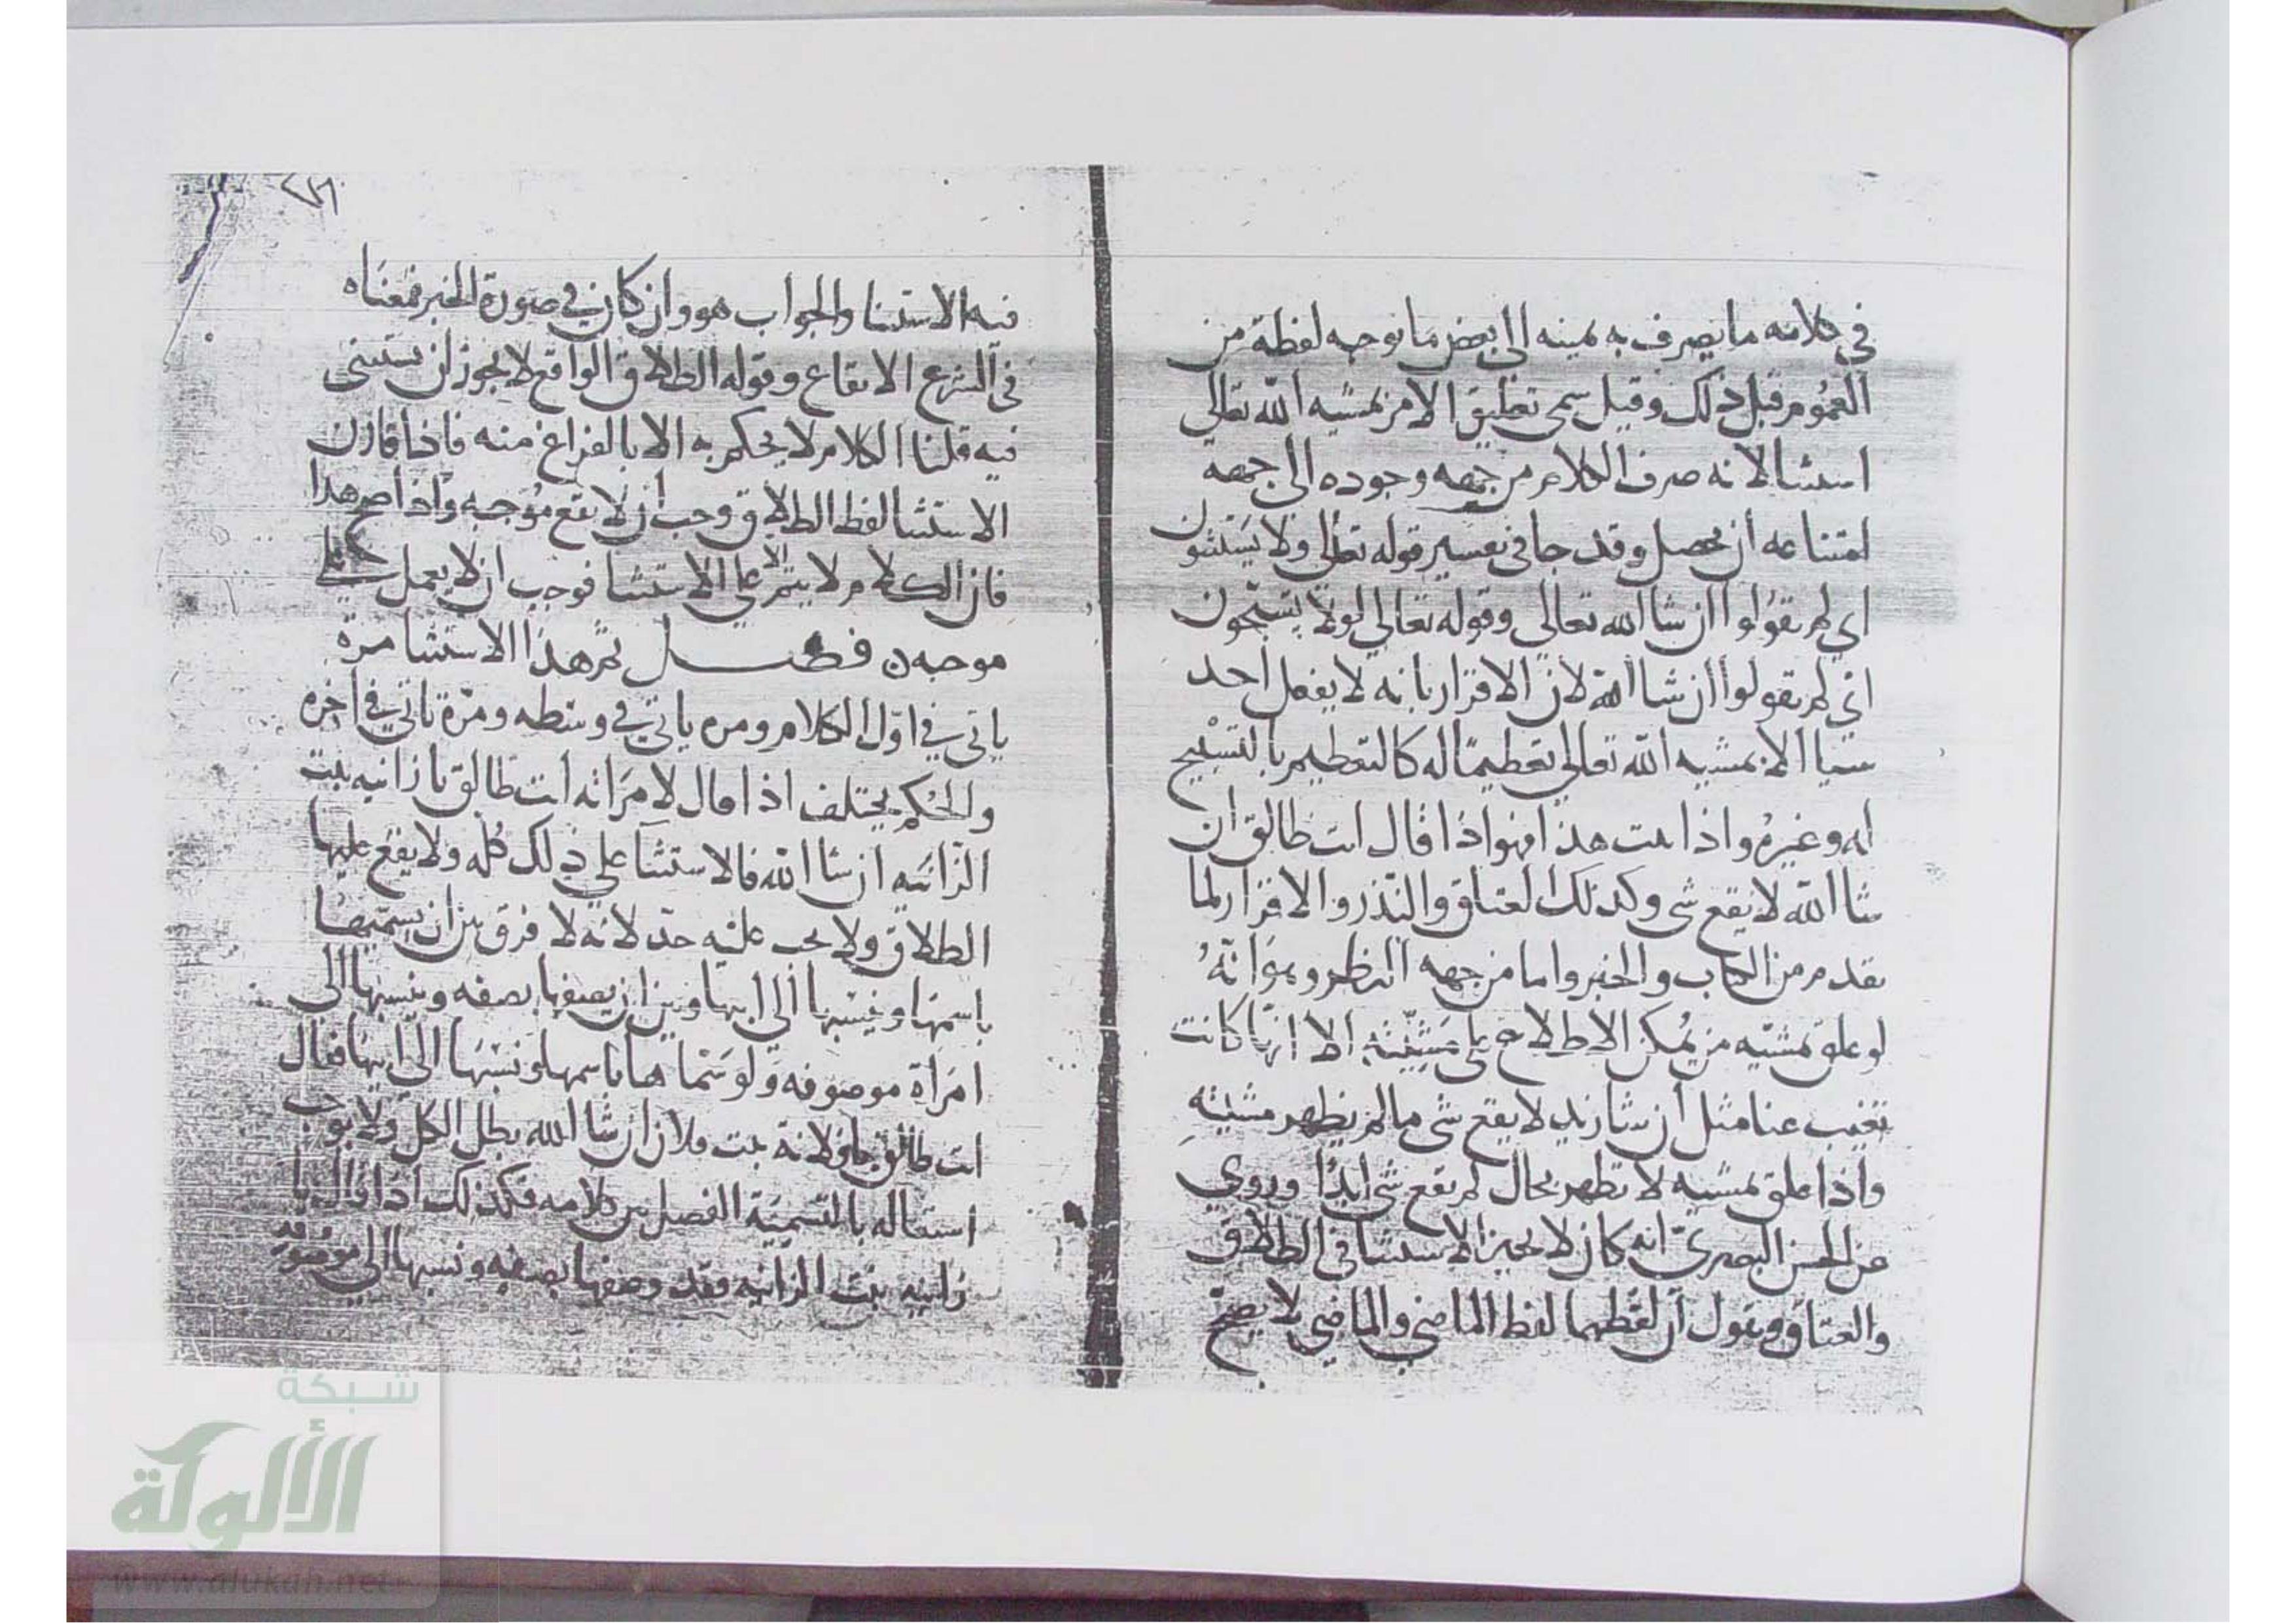 في كلامه ما يصرف به يمينه الى بعض ما توجبه لفظة من
العموم قبل ذلك وقيل سمى تعليق الامر بمشيه الله تعالى
استثنا لانه صرف الكلام من جهه وجوده الى جهة
امتناعه ان يحصل وقد جا في تفسير قوله تعالى ولا يستثنون
اي لم يقولوا ان شا الله تعالى وقوله تعالى لولا تسبحون
اي لم تقولوا ان شا الله لان الاقرار بانه لا يفعل احد
شيا الا بمشيه الله تعالى تعظيما له كالتعظيم بالتسبيح
له وغيره واذا ثبت هذا فهو اذا قال انت طالق ان
شا الله لا يقع شي وكذلك العتاق والنذر والاقرار لما
تقدم من الكتاب والخبر واما من جهه النظر وهو انهُ
لو علق بمشيه من يمكن الاطلاع على مَشيّته الا انها كانت
تغيب عنا مثل ان شا زيد لا يقع شي ما لم يظهر مشيته
واذا علق بمشيه لا تظهر بحال لم يقع شي ابدًا وروي
عن الحسن البصري انه كان لا يجيز الاستثنا في الطلاق
والعتاق ويقول ان لفظهما لفظ الماضي والماضي لا يصح
فيه الاستثنا والجواب هو وان كان في صورة الخبر فمعناه
في الشرع الايقاع وقوله الطلاق الواقع لا يجوز ان يستثنى
فيه قلنا الكلام لا يحكم به الا بالفراغ منه فاذا قارن
الاستثنا لفظ الطلاق وجب ان لا يقع موجبه واذا صح هذا
فان الكلام لا يتم الا على الاستثنا فوجب ان لا يعمل على
موجبه فصل ثم هذا الاستثنا مرة
ياتي في اول الكلام ومره ياتي في وسطه ومرّة تاتي في اخره
والحكم يختلف اذا قال لامراته انت طالق يا زانيه بنت
الزانيه ان شا الله فالاستثنا على ذلك كله ولا يقع عليها
الطلاق ولا يجب عليه حد لانه لا فرق بين ان يسميها
باسمها وينسبها الى ابيها وبين ان يصفها بصفه وينسبها الى
امراة موصوفه ولو سماها باسمها ونسبها الى ابيها فقال
انت طالق يا فلانة بنت فلان ان شا الله بطل الكل ولا يوجب
اشتغاله بالتسمية الفصل بين كلامه فكذلك اذا قال يا
زانيه بنت الزانيه فقد وصفها بصفه ونسبها الى موصوفه
شبكة
الألوكة
www.alukah.net